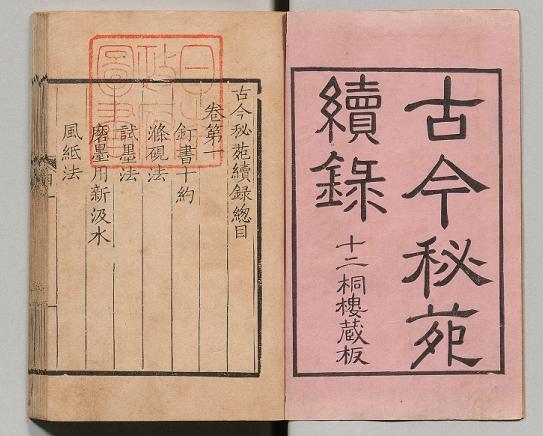 古今秘苑
續錄
十二桐樓蔵板
古今秘苑續錄總目
卷第一
釘書十約
滌硯法
試墨法
磨墨用新汲水
風紙法